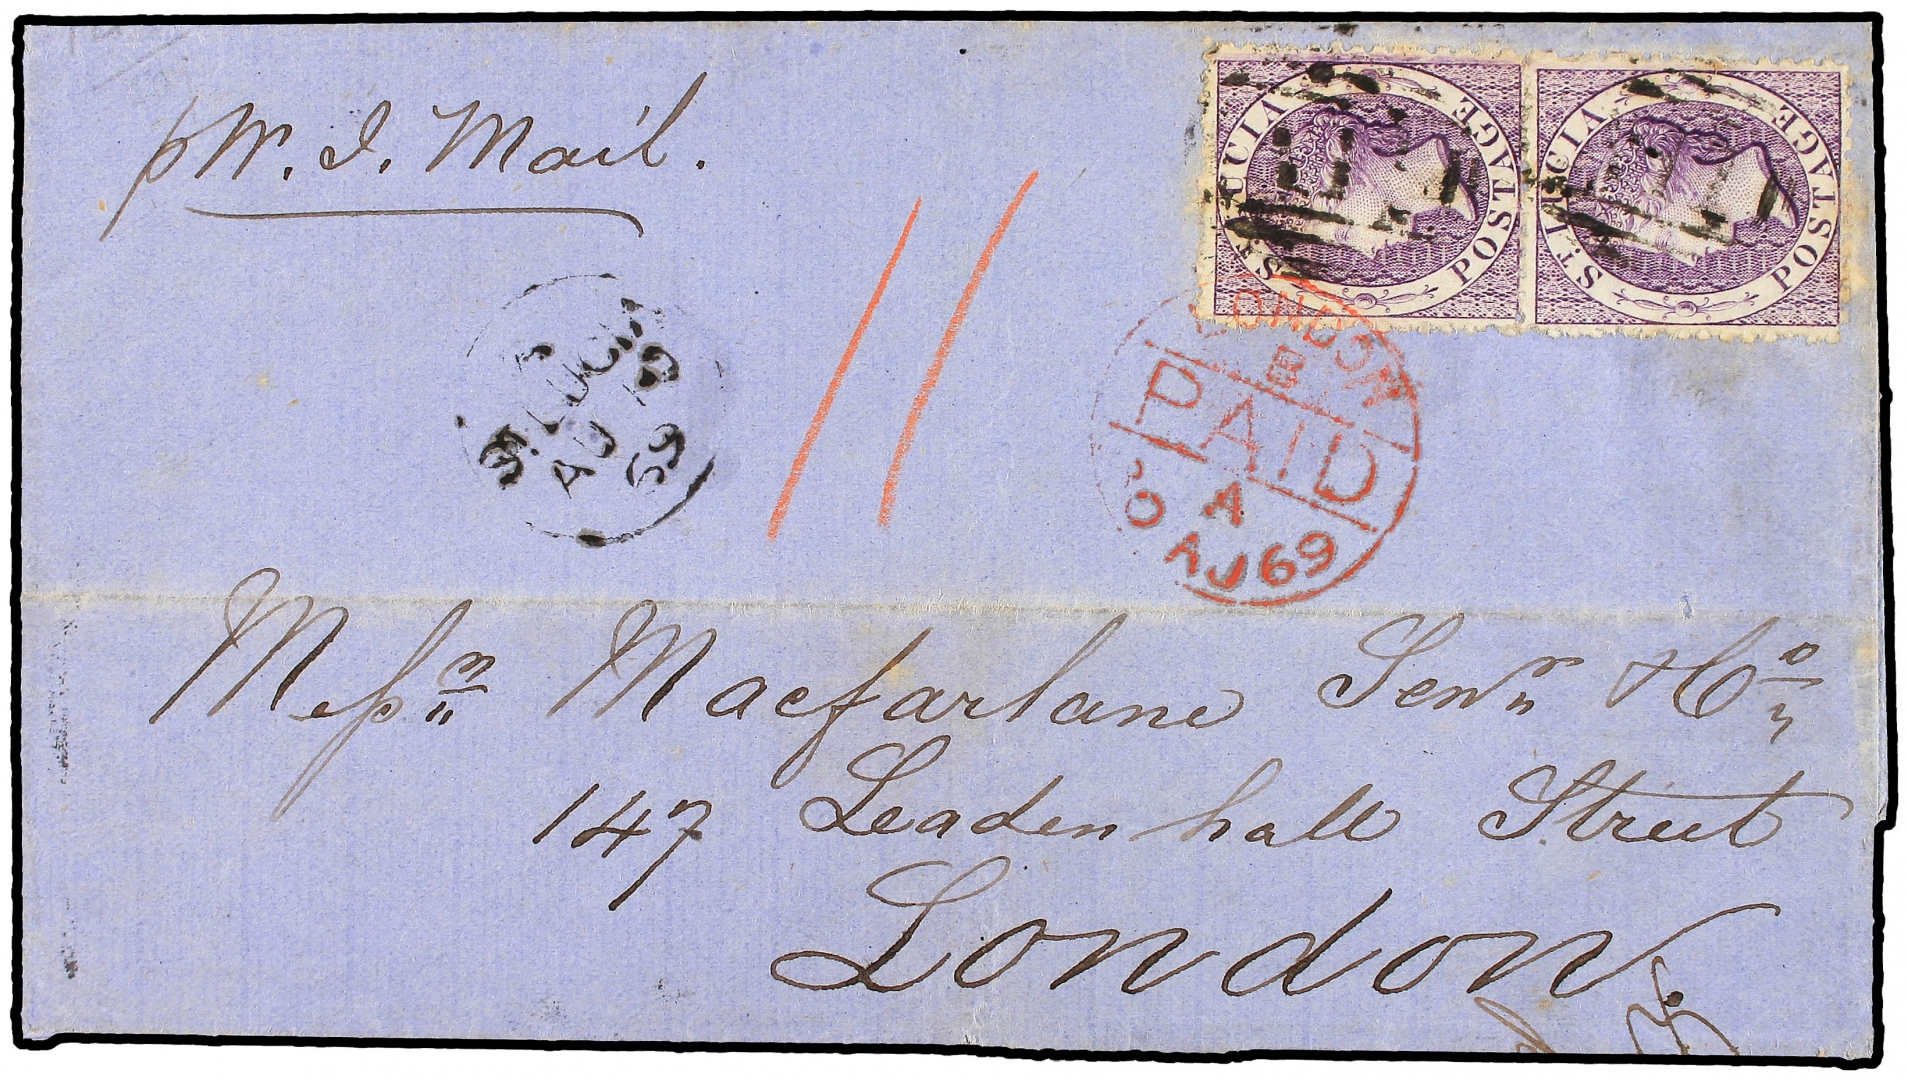 p W. I. Mail.
ST. LUCIA POSTAGE
ST. LUCIA POSTAGE
ST. LUCIA
AU
69
11
LONDON
PAID
A
AU 69
Messrs Macfarlane Senr & Co
147 Leadenhall Street
London.